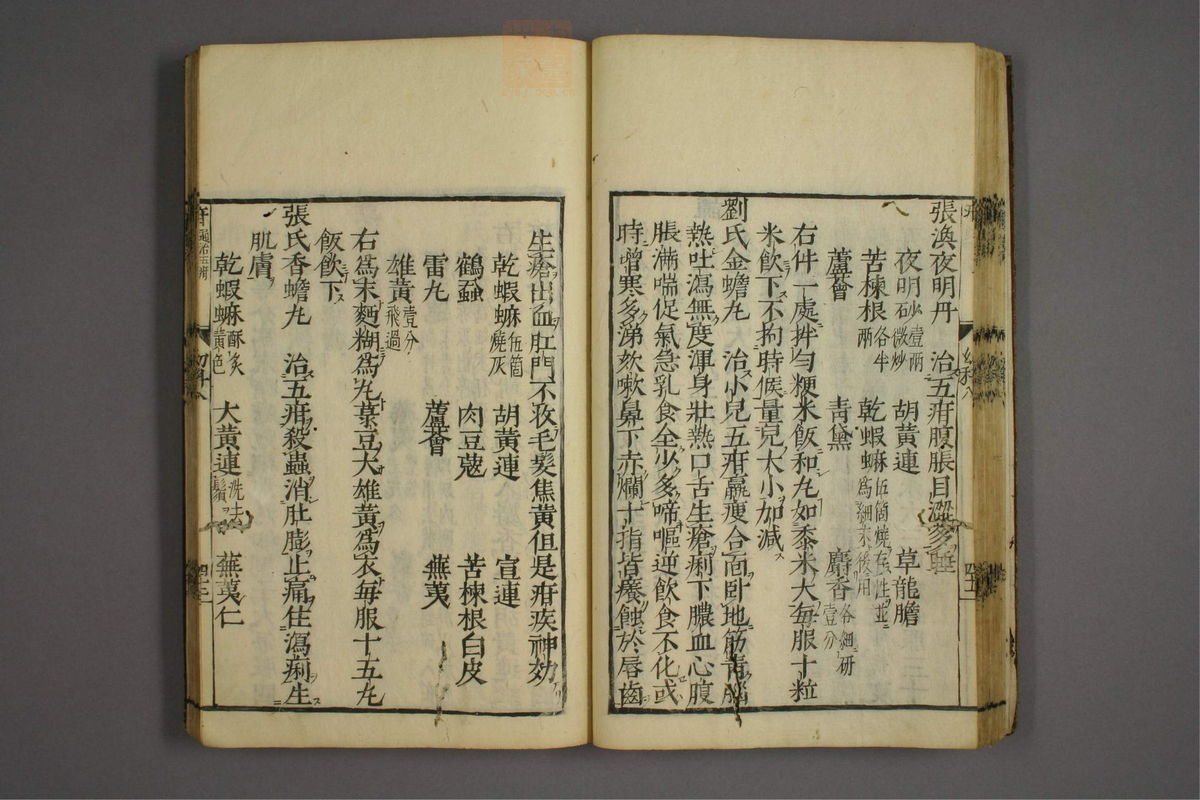 張渙夜明丹　治五疳腹脹目澀多睡
夜明砂壹兩微炒　胡黃連　草龍膽
苦楝根各半兩　乾蝦蟆伍箇燒存性並爲細末後用
蘆薈　青黛　麝香各細研壹分
右件一處拌勻粳米飯和丸如黍米大每服十粒
米飲下不拘時候量兒大小加減
劉氏金蟾丸　治小兒五疳羸瘦合面臥地筋青腦
熱吐瀉無度渾身壯熱口舌生瘡痢下膿血心腹
脹滿喘促氣急乳食全少多啼嘔逆飲食不化或
時增寒多涕欬嗽鼻下赤爛十指皆癢蝕於唇齒
生瘡出血肛門不收毛髮焦黃但是疳疾神効
乾蝦蟆伍箇燒灰　胡黃連　宣連
鶴蝨　肉豆蔻　苦楝根白皮
雷丸　蘆薈　蕪荑
雄黃壹分飛過
右爲末麪糊爲丸菉豆大雄黃爲衣每服十五丸
飯飲下
張氏香蟾丸　治五疳殺蟲消肚膨止痛住瀉痢生
肌膚
乾蝦蟆酥炙黃色　大黃連洗去鬚　蕪荑仁